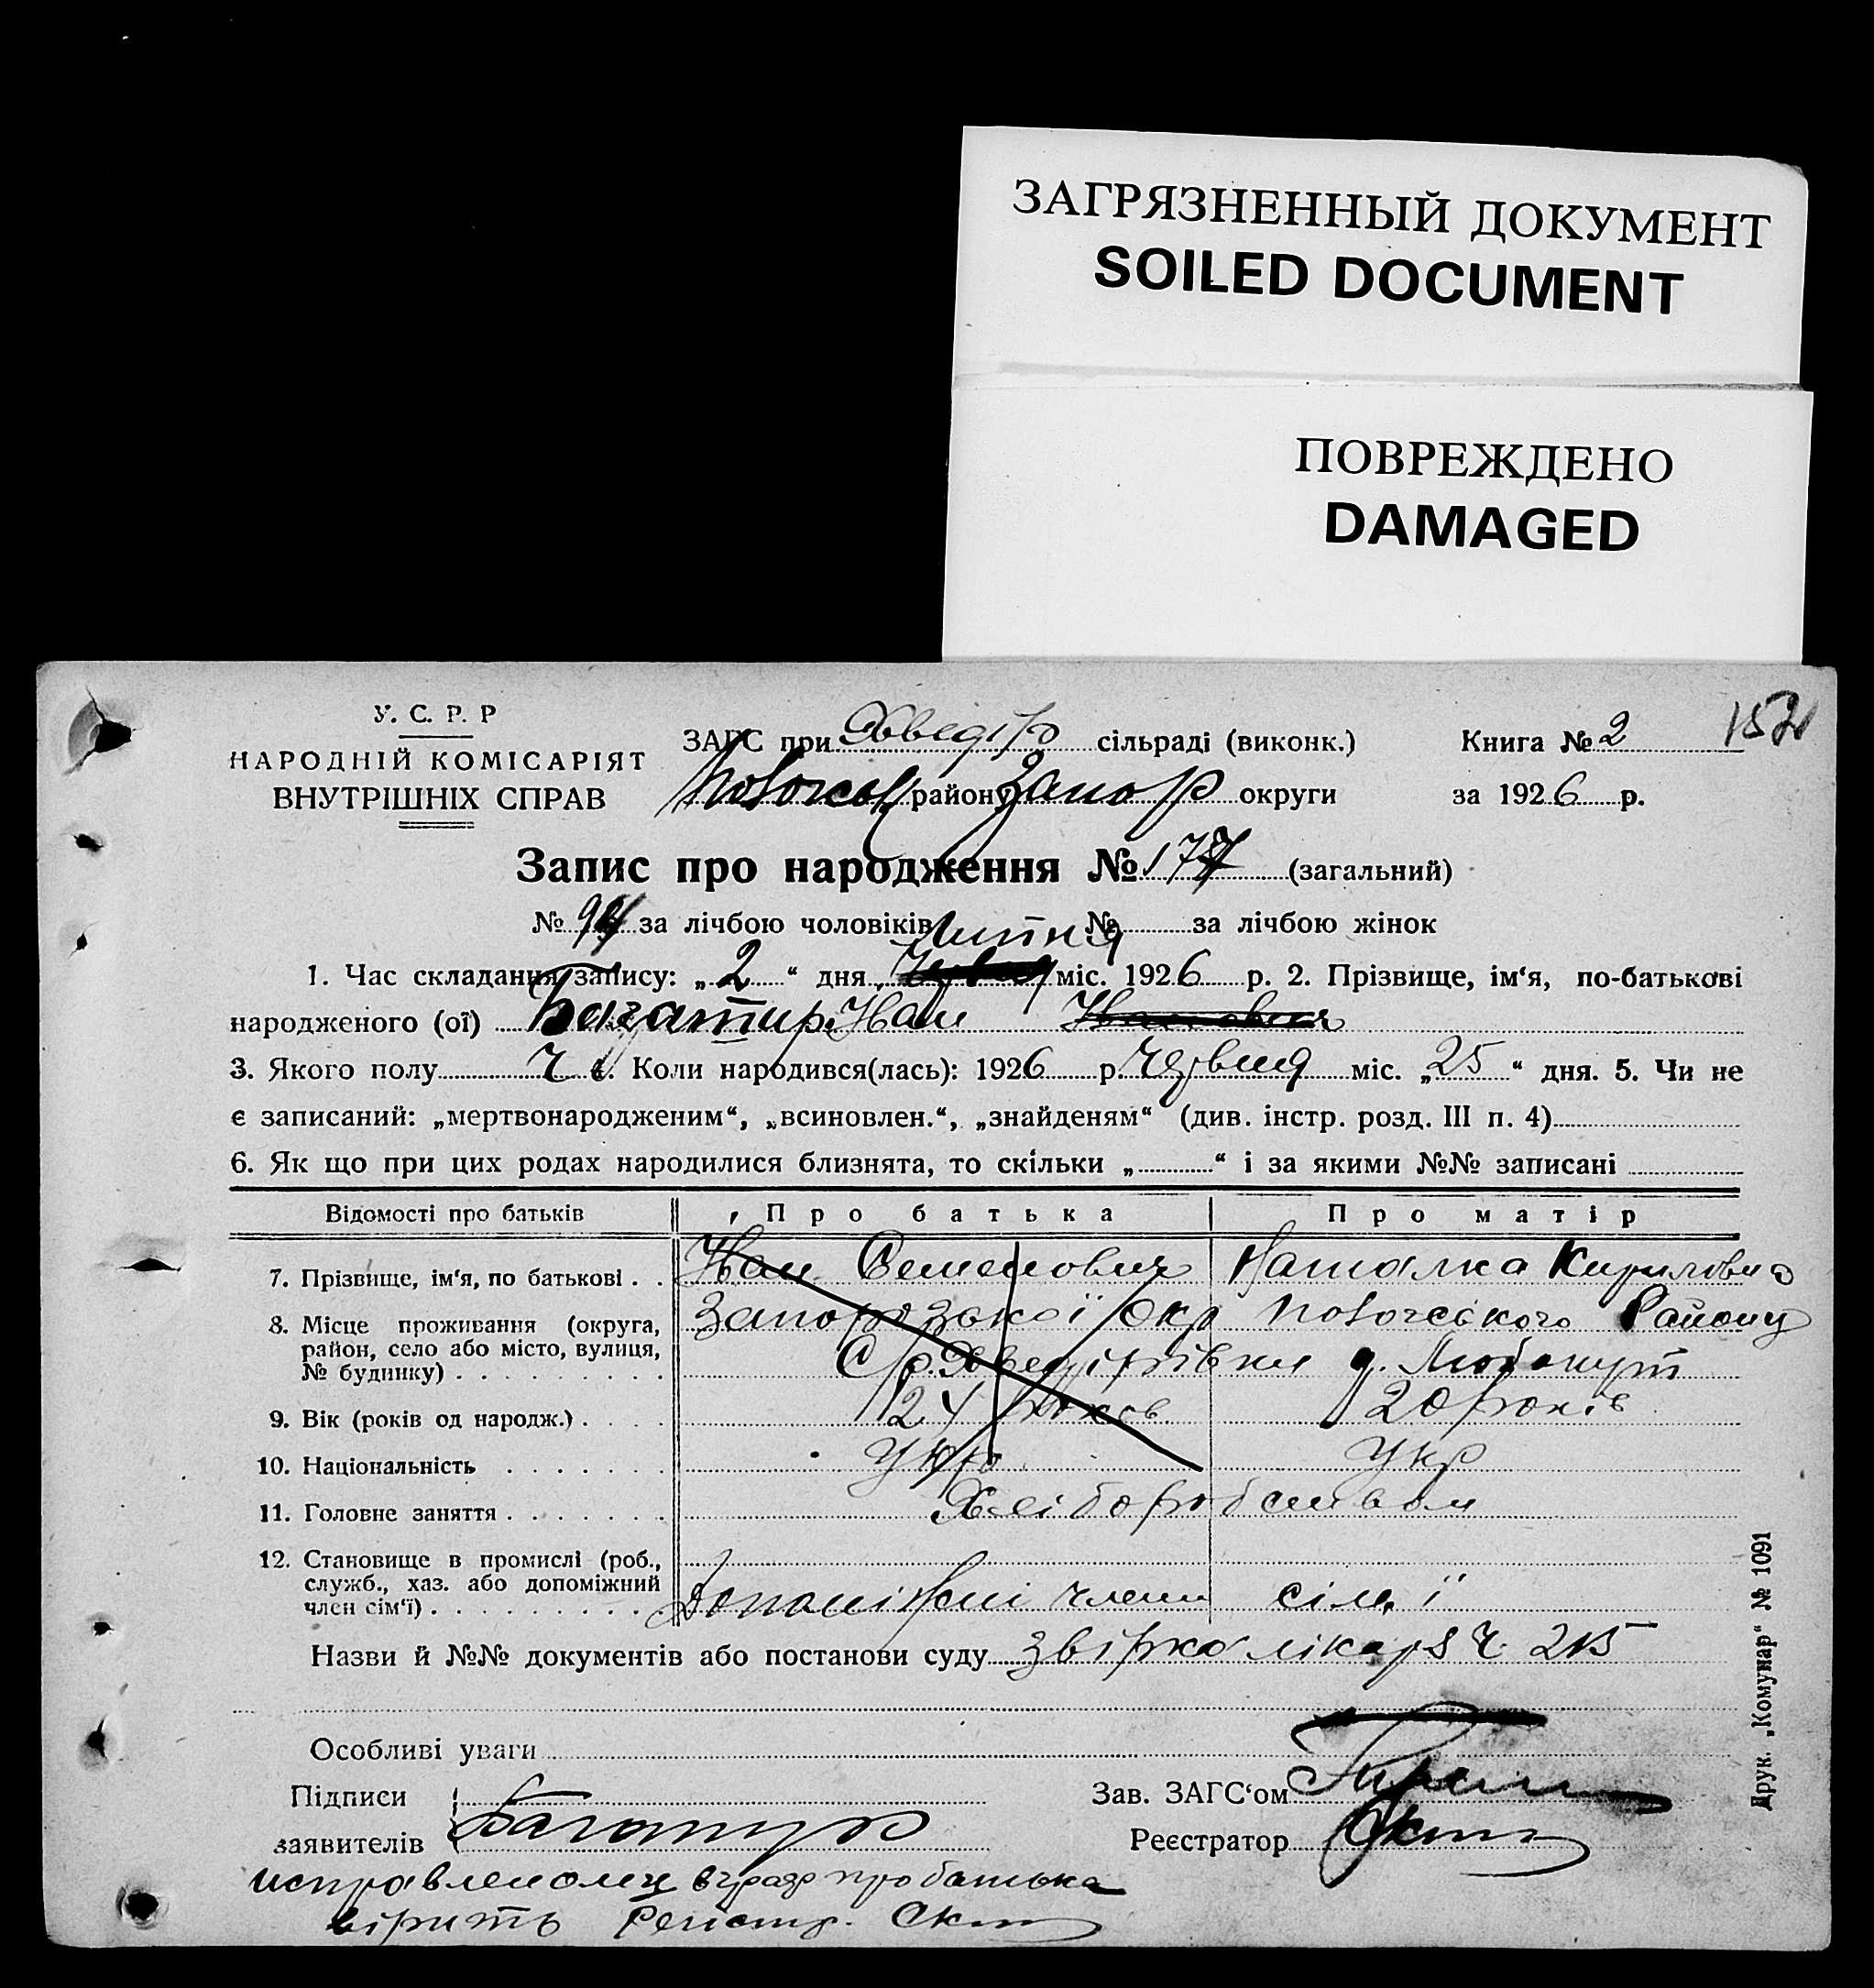 ЗАГРЯЗНЕННЫЙ ДОКУМЕНТ
SOILED DOCUMENT
ПОВРЕЖДЕНО
DAMAGED
У. С. Р. Р
НАРОДНІЙ КОМІСАРІЯТ
ВНУТРІШНІХ СПРАВ
ЗАГС при Хведір сільраді (виконк.) Книга № 2
району Запор округи за 1926 р.
Запис про народження № 177 (загальний)
№ за лічбою чоловіків № за лічбою жінок
Липня
1. Час складання запису: „2“ дня міс. 1926 р. 2. Прізвище, ім‘я, по-батькові
народженого (ої) Багатир Іван
3. Якого полу Ч 4. Коли народився(лась): 1926 р. Червня міс. „25“ дня. 5. Чи не
є записаний: „мертвонародженим“, „всиновлен.“, „знайденям“ (див. інстр. розд. III п. 4)
6. Як що при цих родах народилися близнята, то скільки „ “ і за якими №№ записані
Відомості про батьків Про батька Про матір
7. Прізвище, ім‘я, по батькові . . Іван Семенович Наталка Кириловна
8. Місце проживання (округа, Запорозької Окр Району
район, село або місто, вулиця, С/р. Хведірівки
№ будинку)
9. Вік (років од народж.) 24 років 20 років
10. Національність Укр Укр
11. Головне заняття Хліборобством
12. Становище в промислі (роб.,
служб., хаз. або допоміжний
член сім‘ї) Допоміжні члени сім'ї
Назви й №№ документів або постанови суду звірка лікаря ч. 215
Особливі уваги
Підписи Зав. ЗАГС‘ом
заявителів Багатир Реєстратор
исправленому в граф про батька
вірить Регистр.
Друк. „Комунар“ № 1091